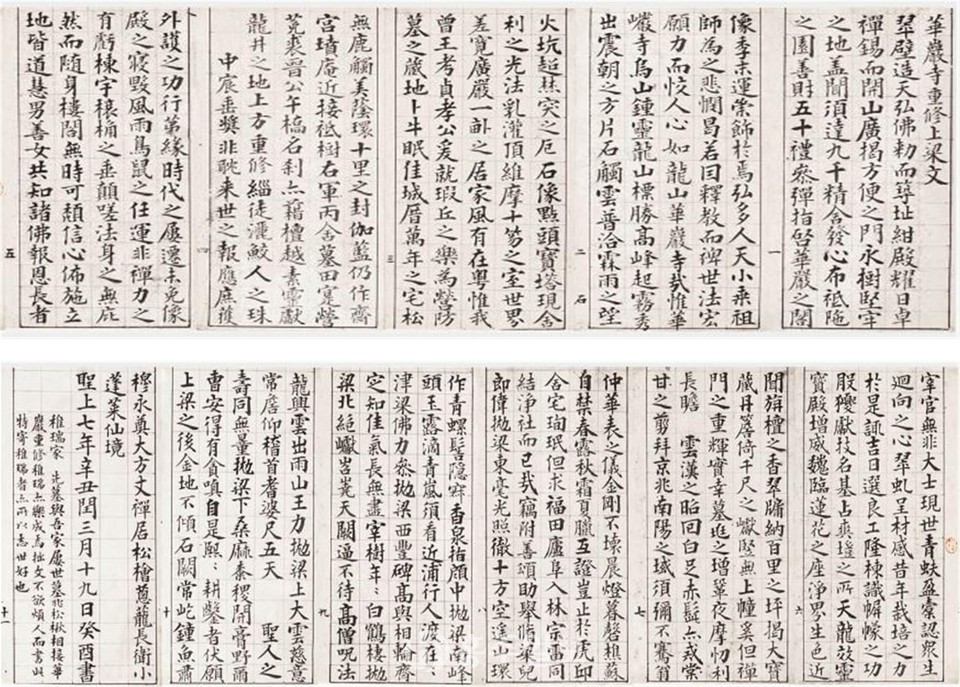 華巖寺重修上梁文
翠壁造天弘佛勅而尋址紺殿耀日卓
禪錫而開山廣揭方便之門水樹堅牢
之地盖聞須達九千精舍發心布祇陁
之園善財五十禮叅彈指啓華嚴之閣
一
像季末運棠飾於焉弘多人天小乘祖
師為之悲憫曷若因釋教而裨世法宏
願力而恔人心如龍山華巖寺哉惟華
巖寺烏山鍾靈龍山標勝高峰起霧秀
出震朝之方片石觸雲普洽霖雨之望
二 石
火坑超焚突之厄石像點頭寶塔現舍
利之光法乳灌頂維摩十笏之室世界
差寬廣嚴一畝之居家風有在粤惟我
曾王考貞孝公爰就瑕丘之樂為營防
墓之藏地卜牛眠佳城厝萬年之宅松
三
無鹿觸美蔭環十里之封伽藍仍作齋
宮墳庵近接祗樹右軍丙舍墓田寔營
菟裘晋公午橋石刹亦藉檀越素靈獻
龍井之地上方重修緇徒灑鮫人之珠
中宸垂奬非耽来世之報應庶獲
四
外護之功行第緣時代之屢遷未免像
殿之寝毁風雨鳥鼠之任運非禪力之
有虧棟宇榱桷之垂顛嗟法身之無庇
然而随身樓閣無時可頹信心佈施立
地皆道慧男善女共知諸佛報恩長者
五
宰官無非大士現世青蚨盈橐認衆生
迴向之心翠虬呈材感昔年栽培之力
於是諏吉日選良工隆棟識幈幪之功
般獿獻技石基占爽塏之所天龍效靈
寶殿增威巍臨蓮花之座净界生色近
六
聞旃檀之香翠牖納百里之坪揭大寶
藏丹簷倚千尺之巘堅無上幢奚但禅
門之重輝實幸墓逕之增翬夜摩忉利
長瞻 雲漢之昭回白足赤髭亦戒棠
甘之剪拜京兆南陽之域須彌不騫翁
七
仲華表之儀金剛不壞晨燈暮磬樵蘇
自禁春露秋霜夏臘互證豈止於虎邱
舍宅珣珉但求福田廬阜入林宗雷同
結浄社而已㦲竊附善頌助舉脩梁兒
郎偉抛梁東毫光照徹十方空遥山環
八
作青螺髻隱寐香泉抬顔中抛梁南峰
頭玉露滴青嵐須看近浦行人渡在〻
津梁佛力叅抛梁西豐碑高與相輪齋
定知佳氣長無盡宰樹年〻白鶴棲抛
梁北絶巘岧嶤天關逼不待高僧呪法
九
龍興雲出雨山王力抛梁上大雲慈意
常居仰稽首耆婆尺五天 聖人之
壽同無量抛梁下桑麻黍稷開膏野爾
曺安得有貪嗔自是熙〻耕鑿者伏願
上梁之後金地不傾石闕常屹鍾魚肅
十
穆永奠大方丈禪居松檜蔥蘢長衛小
蓬萊仙境
聖上七年辛丑閏三月十九日癸酉書
稚瑞家 先墓與吾家屡世墓兆松楸相接華
巖重修稚瑞亦樂成焉拙文不欲煩人而書此
特寄稚瑞者亦所以志世好也
十一